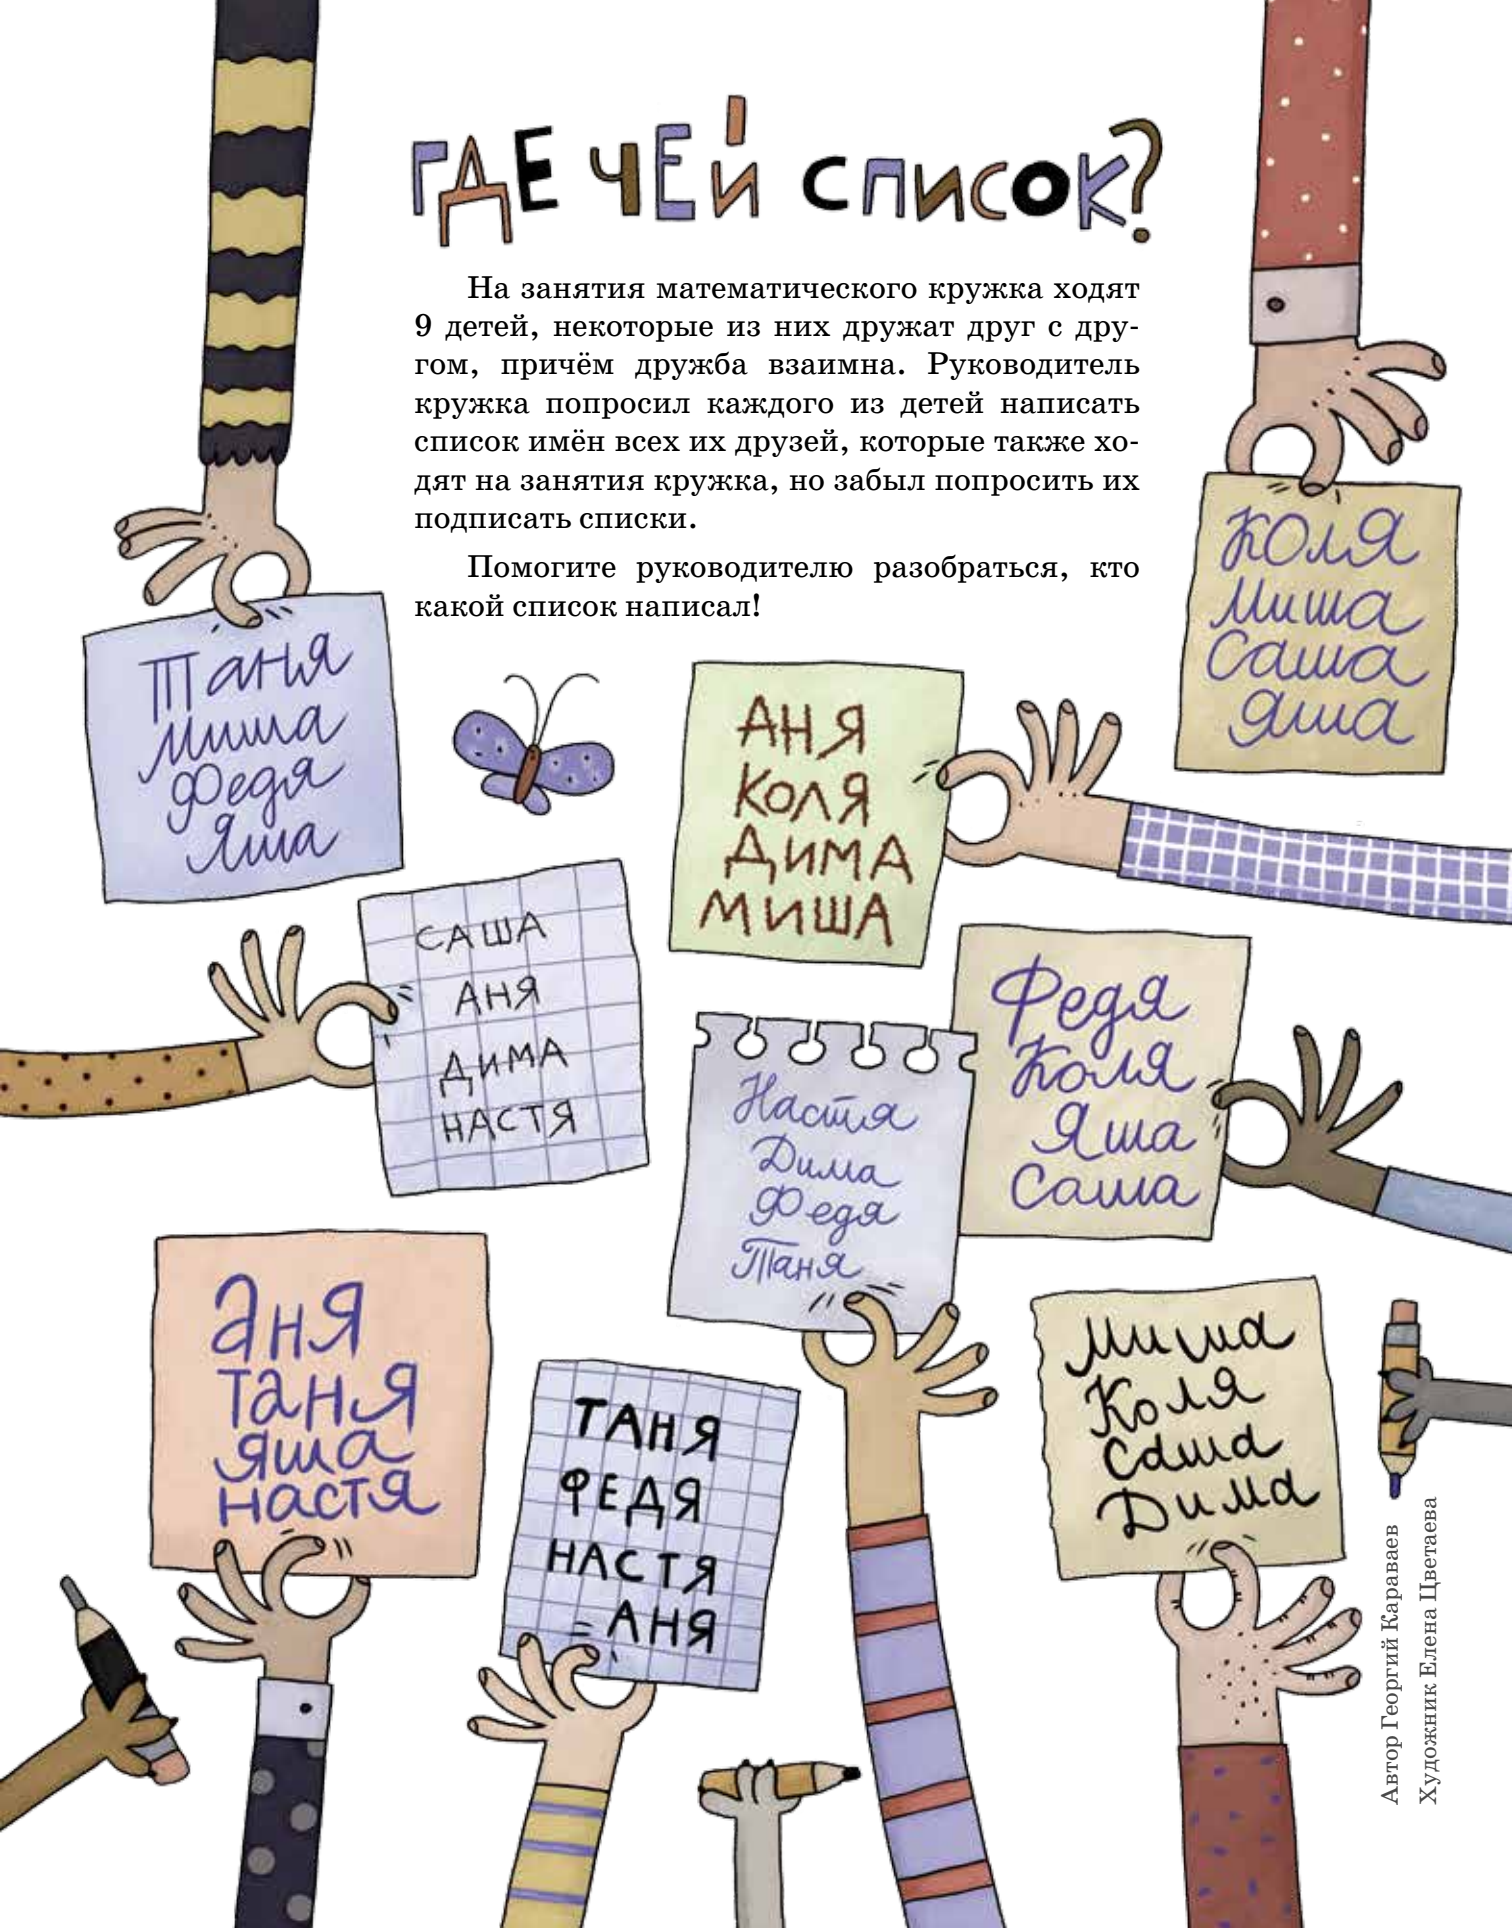 ГДЕ ЧЕЙ СПИСОК?
На занятия математического кружка ходят
9 детей, некоторые из них дружат друг с дру-
гом, причём дружба взаимна. Руководитель
кружка попросил каждого из детей написать
список имён всех их друзей, которые также хо-
дят на занятия кружка, но забыл попросить их
подписать списки.
Помогите руководителю разобраться, кто
какой список написал!
Таня
Миша
Федя
Яша
Коля
Миша
Саша
Яша
АНЯ
КОЛЯ
ДИМА
МИША
САША
АНЯ
ДИМА
НАСТЯ
Федя
Коля
Яша
Саша
Настя
Дима
Федя
Таня
Аня
Таня
Яша
Настя
ТАНЯ
ФЕДЯ
НАСТЯ
АНЯ
Миша
Коля
Саша
Дима
Автор Георгий Караваев
Художник Елена Цветаева